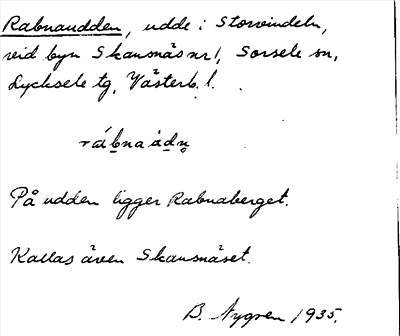 Rabnaudden, udde i Storvindeln,
vid byn Skansnäs nr 1, Sorsele sn,
Lycksele tg, Västerb. l.
rábnaádn̥
På udden ligger Rabnaberget.
Kallas även Skansnäset.
B. Nygren 1935.